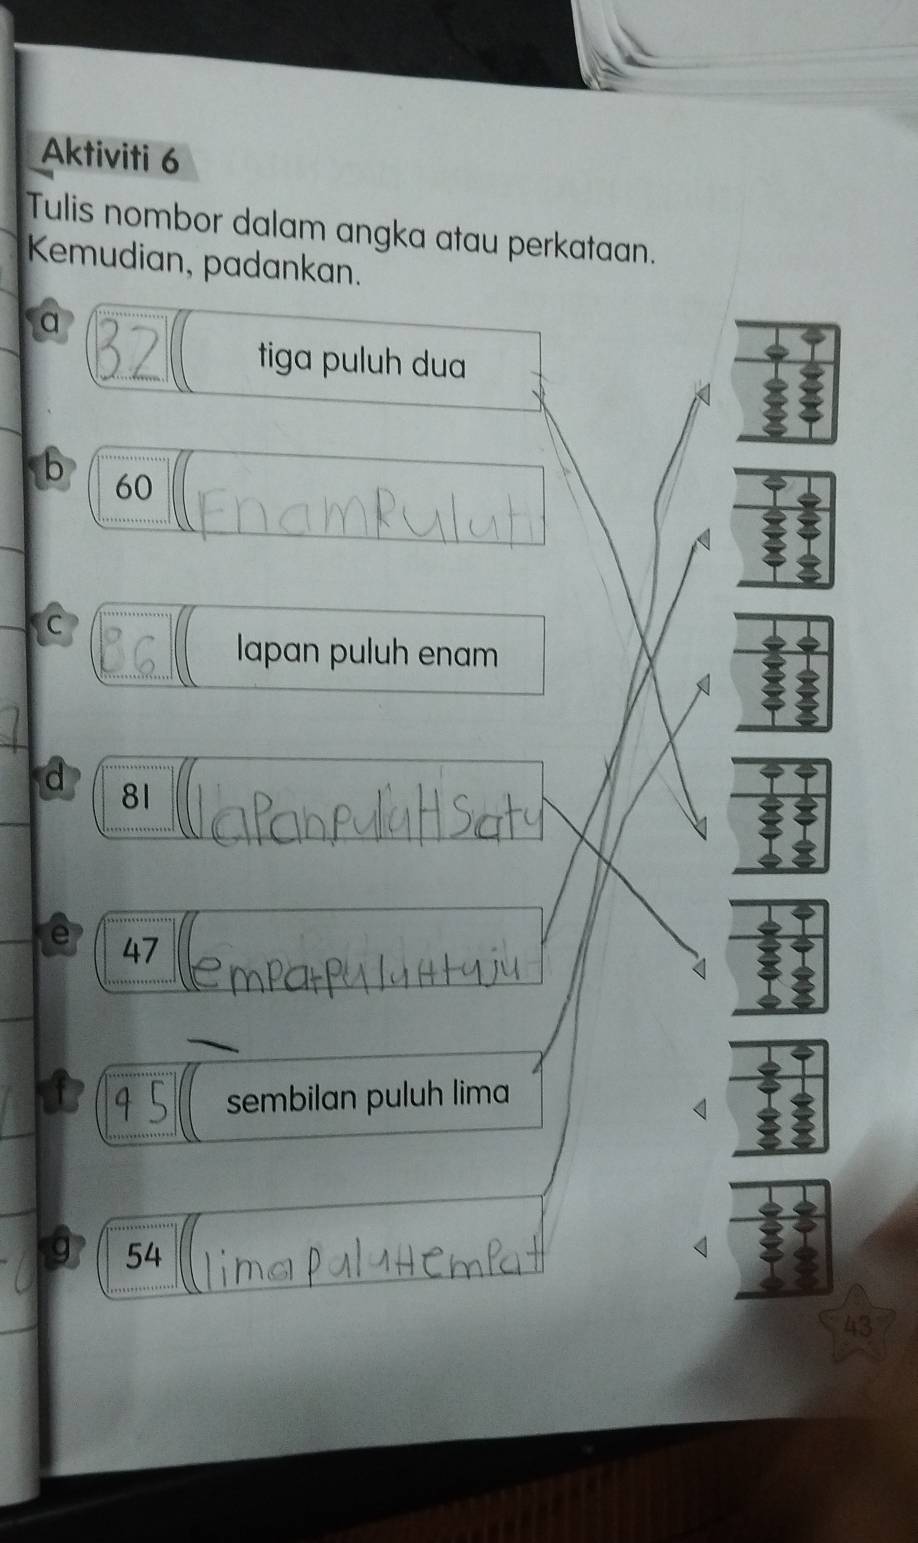 Aktiviti 6
Tulis nombor dalam angka atau perkataan.
Kemudian, padankan.
a 32 tiga puluh dua
b 60 EnamPuluh
c 86 lapan puluh enam
d 81 laPanpuluHSatu
e 47 emPatpuluHtuju
f 95 sembilan puluh lima
g 54 limapuluHemPat
43